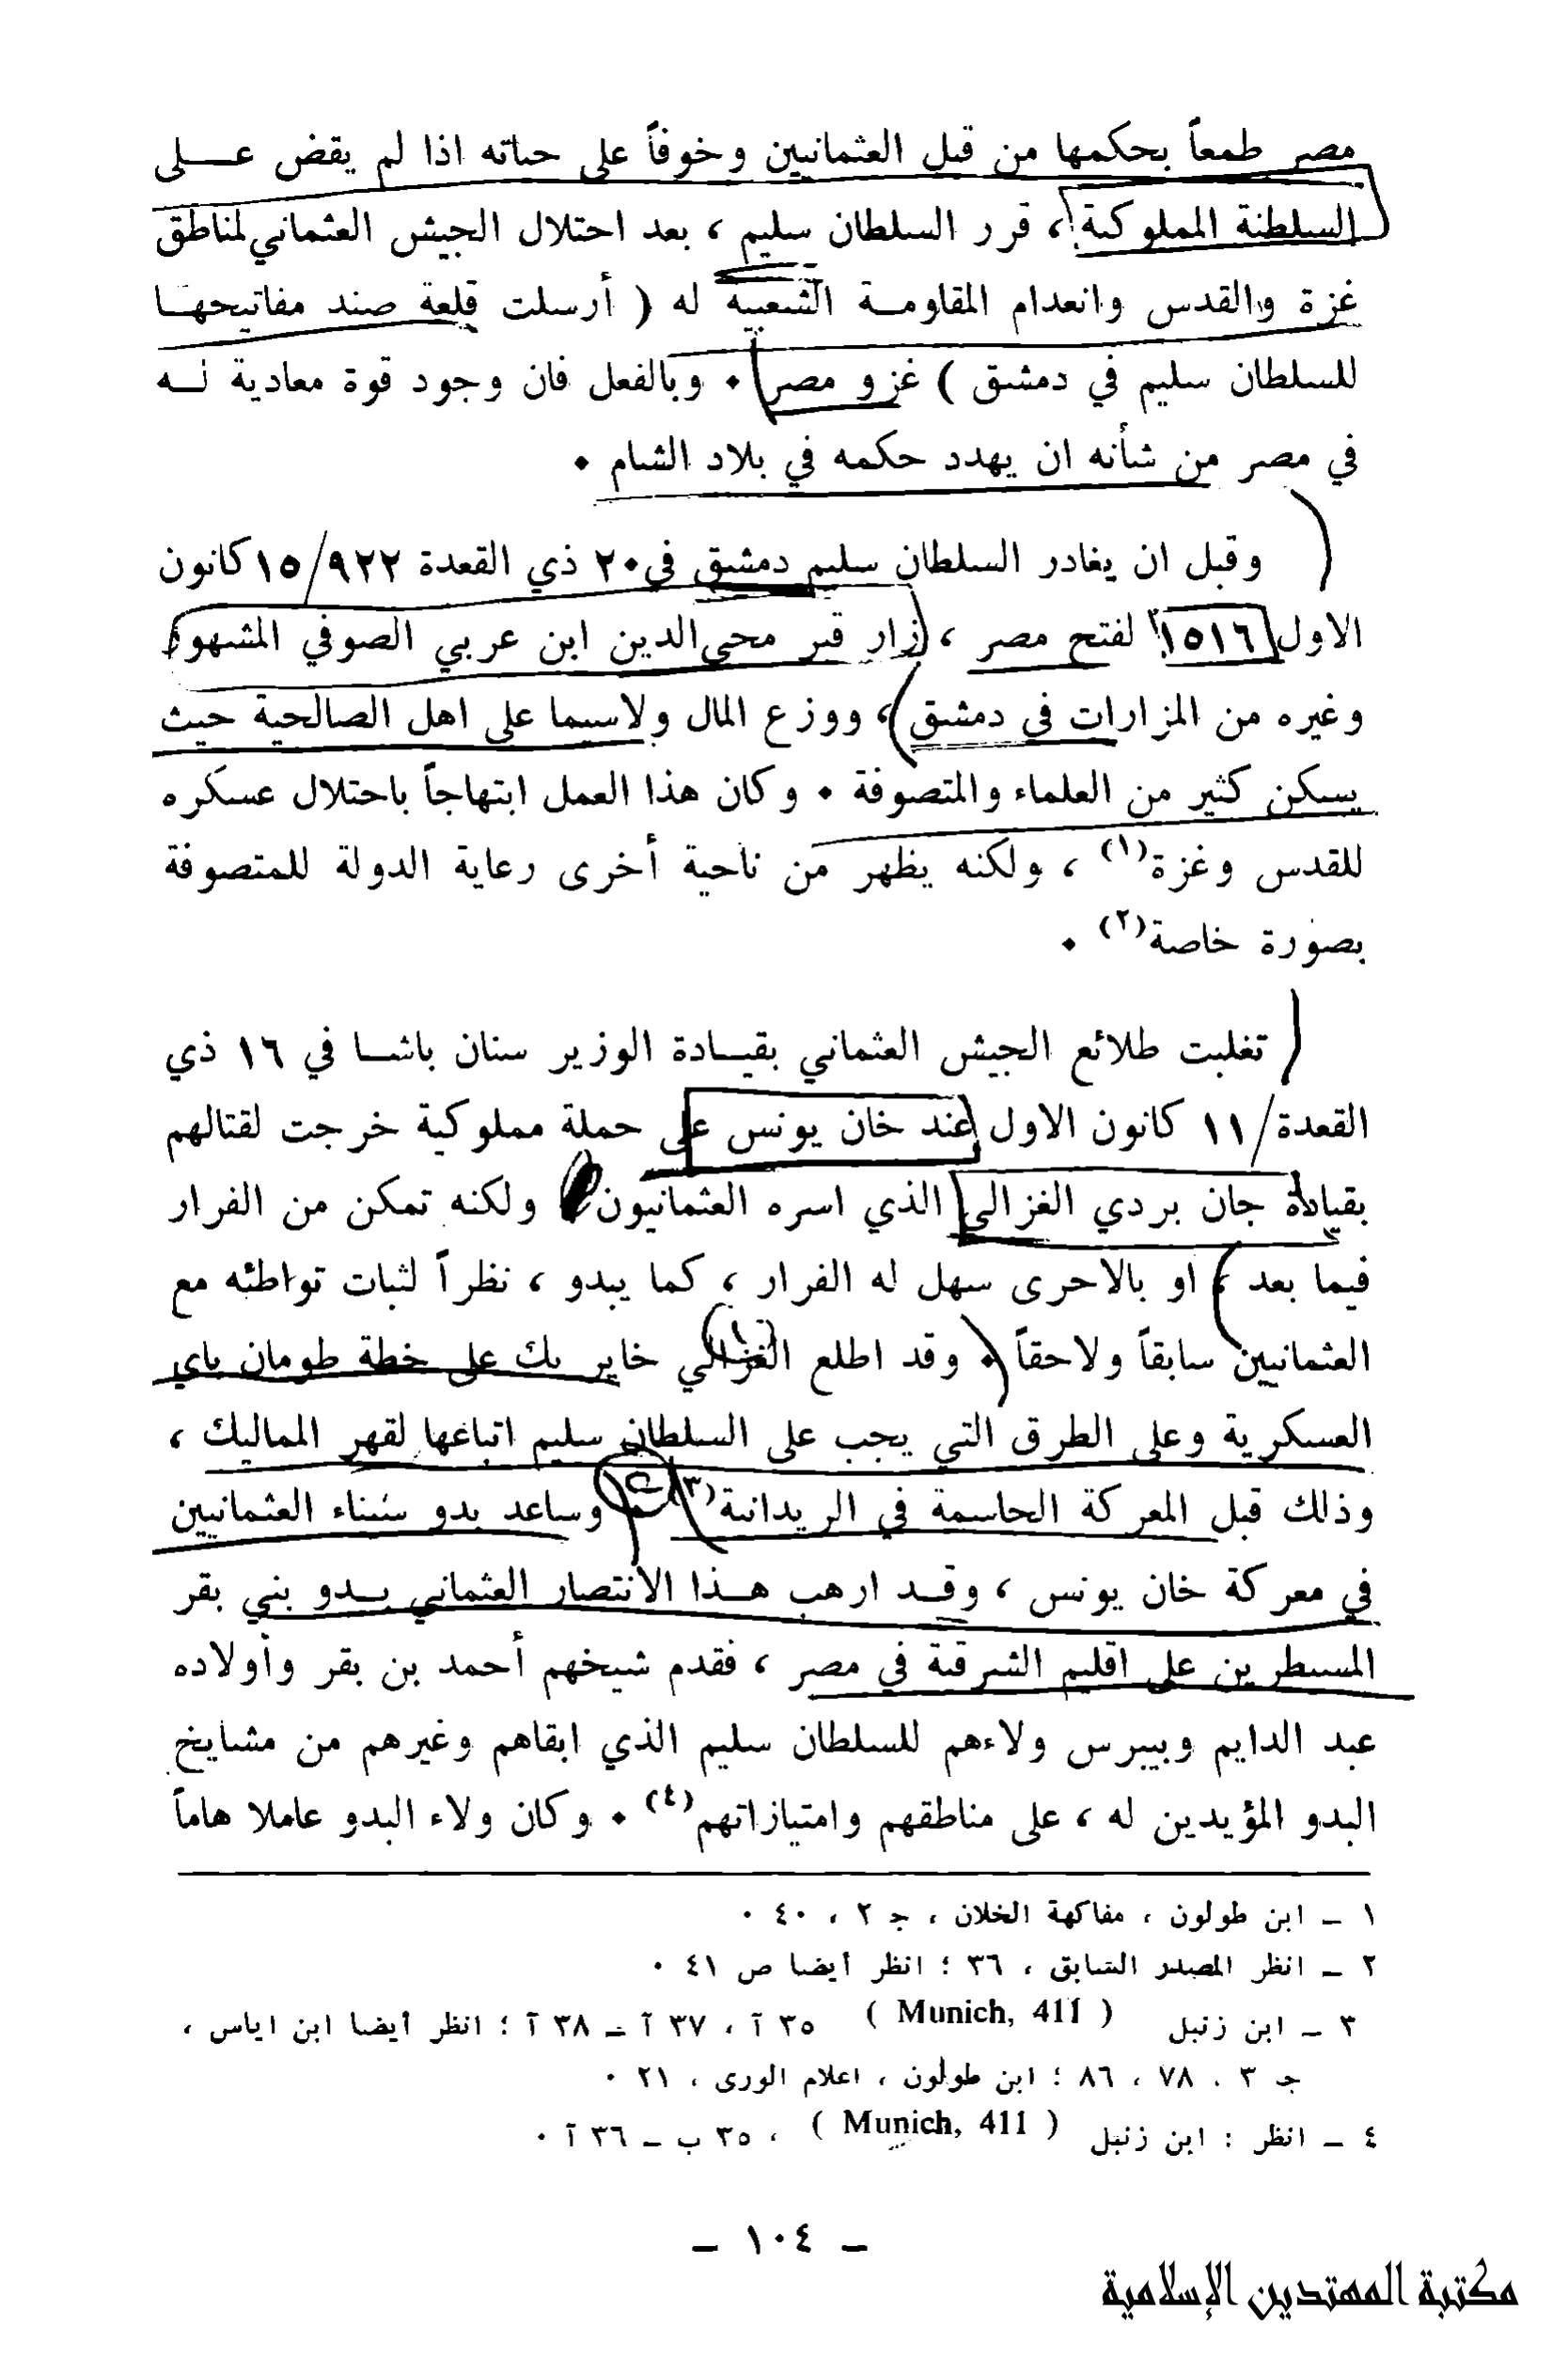 مصر طمعاً بحكمها من قبل العثمانيين وخوفاً على حياته اذا لم يقض عــلى
السلطنة المملوكية ، قرر السلطان سليم ، بعد احتلال الجيش العثماني لمناطق
غزة والقدس وانعدام المقاومــة الشعبية له ( أرسلت قلعة صفد مفاتيحهــا
للسلطان سليم في دمشق ) غزو مصر . وبالفعل فان وجود قوة معادية لــه
في مصر من شأنه ان يهدد حكمه في بلاد الشام .
وقبل ان يغادر السلطان سليم دمشق في ٢٠ ذي القعدة ٩٢٢/١٥ كانون
الاول ١٥١٦ لفتح مصر ، زار قبر محي الدين ابن عربي الصوفي المشهور
وغيره من المزارات في دمشق ، ووزع المال ولاسيما على اهل الصالحية حيث
يسكن كثير من العلماء والمتصوفة . وكان هذا العمل ابتهاجاً باحتلال عسكره
للقدس وغزة(١) ، ولكنه يظهر من ناحية أخرى رعاية الدولة للمتصوفة
بصورة خاصة(٢) .
تغلبت طلائع الجيش العثماني بقيــادة الوزير سنان باشــا في ١٦ ذي
القعدة/ ١١ كانون الاول عند خان يونس على حملة مملوكية خرجت لقتالهم
بقيادة جان بردي الغزالي الذي اسره العثمانيون ولكنه تمكن من الفرار
فيما بعد ، او بالاحرى سهل له الفرار ، كما يبدو ، نظراً لثبات تواطئه مع
العثمانيين سابقاً ولاحقاً . وقد اطلع الغزالي خاير بك على خطة طومان باي
العسكرية وعلى الطرق التي يجب على السلطان سليم اتباعها لقهر المماليك ،
وذلك قبل المعركة الحاسمة في الريدانية(٣) . وساعد بدو سيناء العثمانيين
في معركة خان يونس ، وقــد ارهب هــذا الانتصار العثماني بــدو بني بقر
المسيطرين على اقليم الشرقية في مصر ، فقدم شيخهم أحمد بن بقر وأولاده
عبد الدايم وبيبرس ولاءهم للسلطان سليم الذي ابقاهم وغيرهم من مشايخ
البدو المؤيدين له ، على مناطقهم وامتيازاتهم(٤) . وكان ولاء البدو عاملا هاماً
١ ــ ابن طولون ، مفاكهة الخلان ، جـ ٢ ، ٤٠ .
٢ ــ انظر المصدر السابق ، ٣٦ ؛ انظر أيضا ص ٤١ .
٣ ــ ابن زنبل ( Munich, 411 ) ٣٥ آ ، ٣٧ آ ــ ٣٨ آ ؛ انظر أيضا ابن اياس ،
جـ ٣ ، ٧٨ ، ٨٦ ؛ ابن طولون ، اعلام الورى ، ٢١ .
٤ ــ انظر : ابن زنبل ( Munich, 411 ) ، ٣٥ ب ــ ٣٦ آ .
ــ ١٠٤ ــ
مكتبة المهتدين الإسلامية